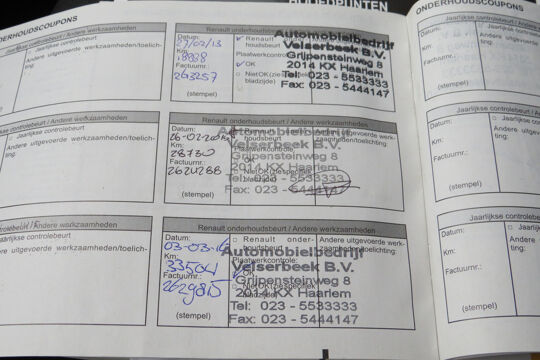 HOOFDPUNTEN
ONDERHOUDSCOUPONS
ONDERHOUDSCOUPONS
Jaarlijkse controlebeurt / Andere werkzaamheden
Jaarlijkse controlebeurt
Andere uitgevoerde werkzaamheden/toelichting:
Renault onderhoudsbeurt / Andere werkzaamheden
Datum:
27/02/13
Km:
18888
Factuurnr.:
263257
(stempel)
Renault
houdsbeurt
Plaatwerkcontrole:
OK
Niet OK (zie specifiek
bladzijde)
Automobielbedrijf
Velserbeek B.V.
Grijpensteinweg 8
2014 KX Haarlem
Tel: 023 - 5533333
Fax: 023 - 5444147
Andere werkzaamheden
Jaarlijkse controlebeurt
Andere uitgevoerde werkzaamheden/toelichting:
Renault onderhoudsbeurt / Andere werkzaamheden
Datum:
Km:
28730
Factuurnr.:
2624288
(stempel)
houdsbeurt
Plaatwerkcontrole:
OK
Niet OK (zie specifiek
bladzijde)
Andere uitgevoerde werkzaamheden/toelichting:
Automobielbedrijf
Velserbeek B.V.
Grijpensteinweg 8
2014 KX Haarlem
Tel: 023 - 5533333
Fax: 023 - 5444147
controlebeurt / Andere werkzaamheden
Jaarlijkse controlebeurt
Andere uitgevoerde werkzaamheden/toelichting:
Renault onderhoudsbeurt / Andere werkzaamheden
Datum:
Km:
33504
Factuurnr.:
(stempel)
Renault onderhoudsbeurt
Plaatwerkcontrole:
OK
Niet OK (zie specifiek
bladzijde)
Andere uitgevoerde werkzaamheden/toelichting:
Automobielbedrijf
Velserbeek B.V.
Grijpensteinweg 8
2014 KX Haarlem
Tel: 023 - 5533333
Fax: 023 - 5444147
Jaarlijkse controlebeurt / Andere
Datum:
Km:
Factuurnr.:
(stempel)
Jaarlijkse
Andere
ting:
Jaarlijkse controlebeurt
Datum:
Km:
Factuurnr.:
(stempel)
Andere
ting:
Jaarlijkse controlebe
Datum:
Km:
Factuurnr.:
(stempel)
Andere
ting: